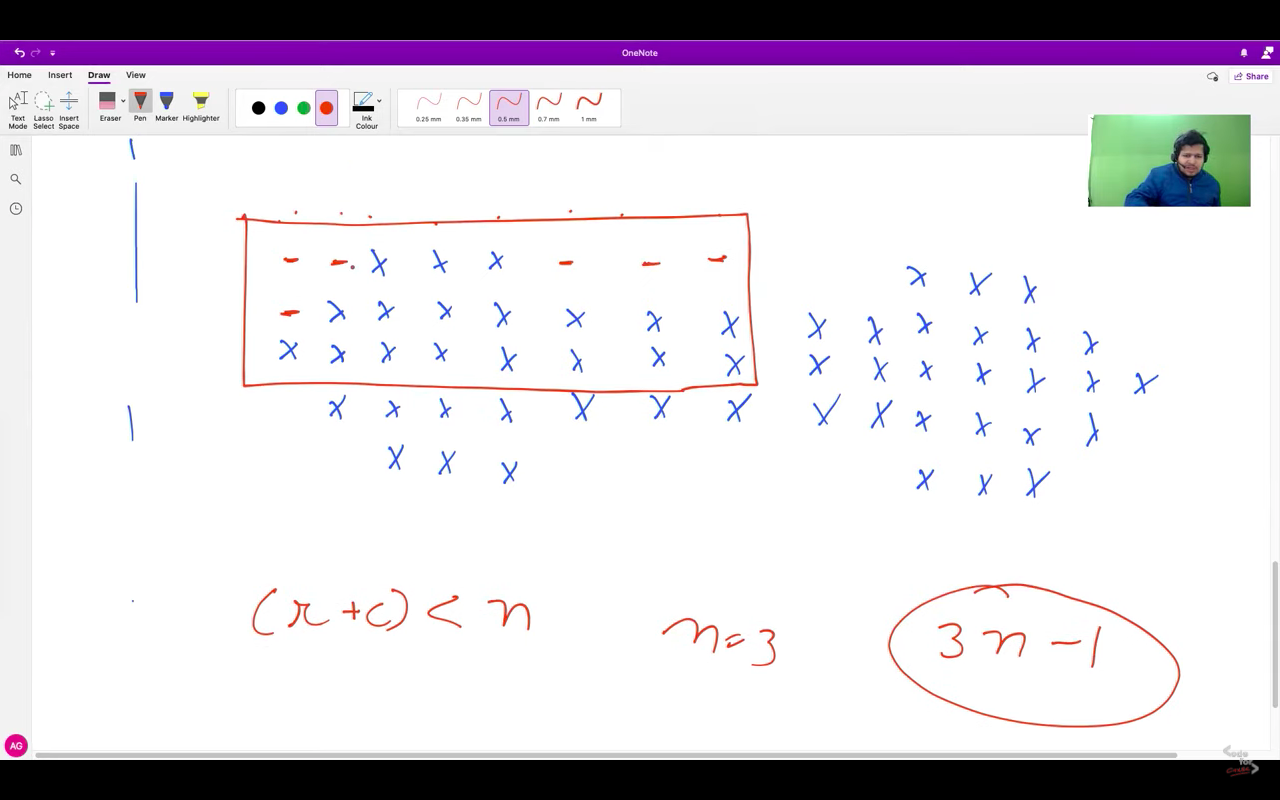 OneNote
Home Insert Draw View Share
Text Mode Lasso Select Insert Space Eraser Pen Marker Highlighter Ink Colour 0.25 mm 0.35 mm 0.5 mm 0.7 mm 1 mm
- - x x x - - -
x x x
- x x x x x x x
x x x x x x
x x x x x x x x
x x x x x x x
x x x x x x x
x x x x x x
x x x
x x x
(r + c) < n
n = 3
3n - 1
AG
Code for